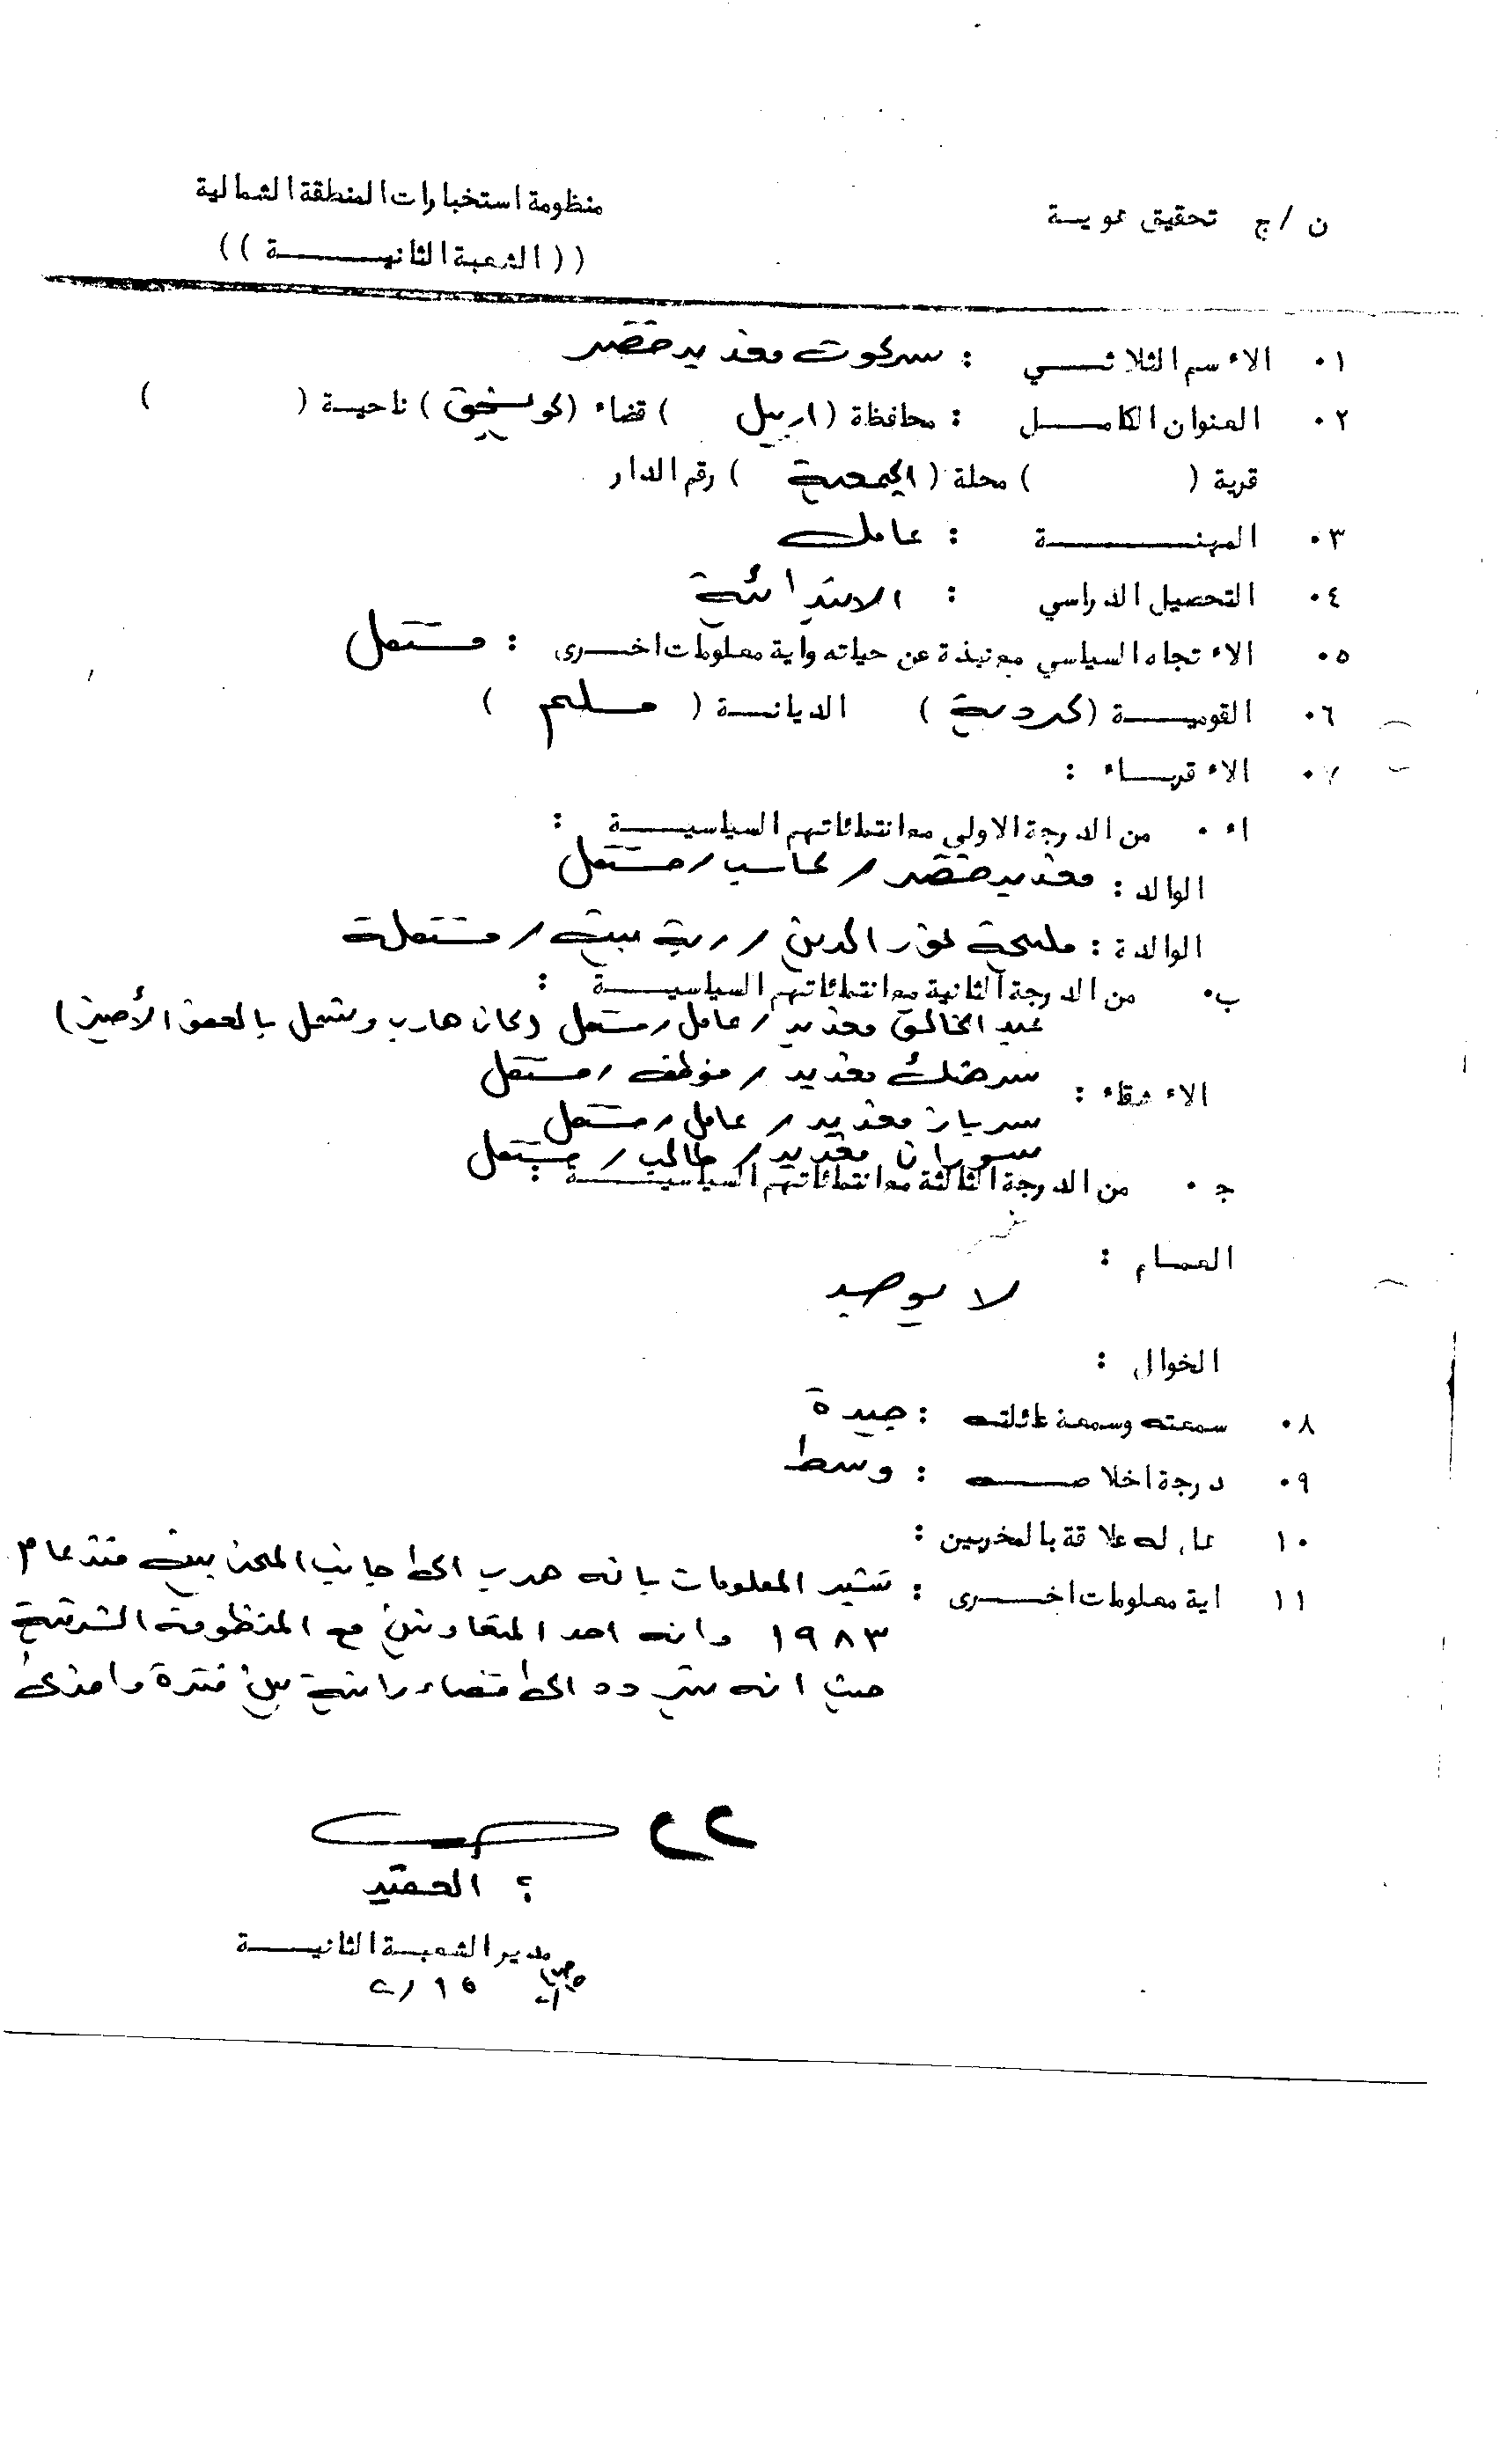 منظومة استخبارات المنطقة الشمالية
ن / ج تحقيق هوية
(( الشعبة الثانيــــة ))
٠١ الاءسم الثلاثــي : سركوت مغديد خضر
٠٢ العنوان الكامــل : محافظة ( اربيل ) قضاء ( كويسنجق ) ناحيـة ( )
قرية ( ) محلة ( الجمعية ) رقم الدار
٠٣ المهنــــة : عامل
٠٤ التحصيل الدراسي : الابتدائية
٠٥ الاءتجاه السياسي مع نبذة عن حياته واية معلومات اخــرى : مستقل
٠٦ القوميــة ( كردية ) الديانــة ( مسلم )
٠٧ الاءقربـاء :
اء ٠ من الدرجة الاولى مع انتمائاتهم السياسيــة :
الوالد : مغديد خضر / كاسب / مستقل
الوالدة : مليحة نور الدين / ربة بيت / مستقلة
ب٠ من الدرجة الثانية مع انتمائاتهم السياسيــة :
عبد الخالق مغديد / عامل / مستقل ( كان هارب وشمل بالعفو الأخير )
مغديد / موظف / مستقل
الاءشقاء :
مغديد / عامل / مستقل
سوران مغديد / طالب / مستقل
ج ٠ من الدرجة الثالثة مع انتمائاتهم السياسيــة :
العمـام :
لا يوجد
الخوال :
٠٨ سمعته وسمعة عائلته : جيدة
٠٩ درجة اخلاصــه : وسط
١٠ هل له علاقة بالمخربين :
١١ اية معلومات اخــرى : تشير المعلومات بانه هرب الى جانب المخربين منذ عام
١٩٨٣ وانه احد المتعاونين مع المنظومة الشرقية
حيث انه يتردد الى قضاء رانية بين فترة واخرى
ع العقيد
مدير الشعبـة الثانيــة
١٥ / ٢